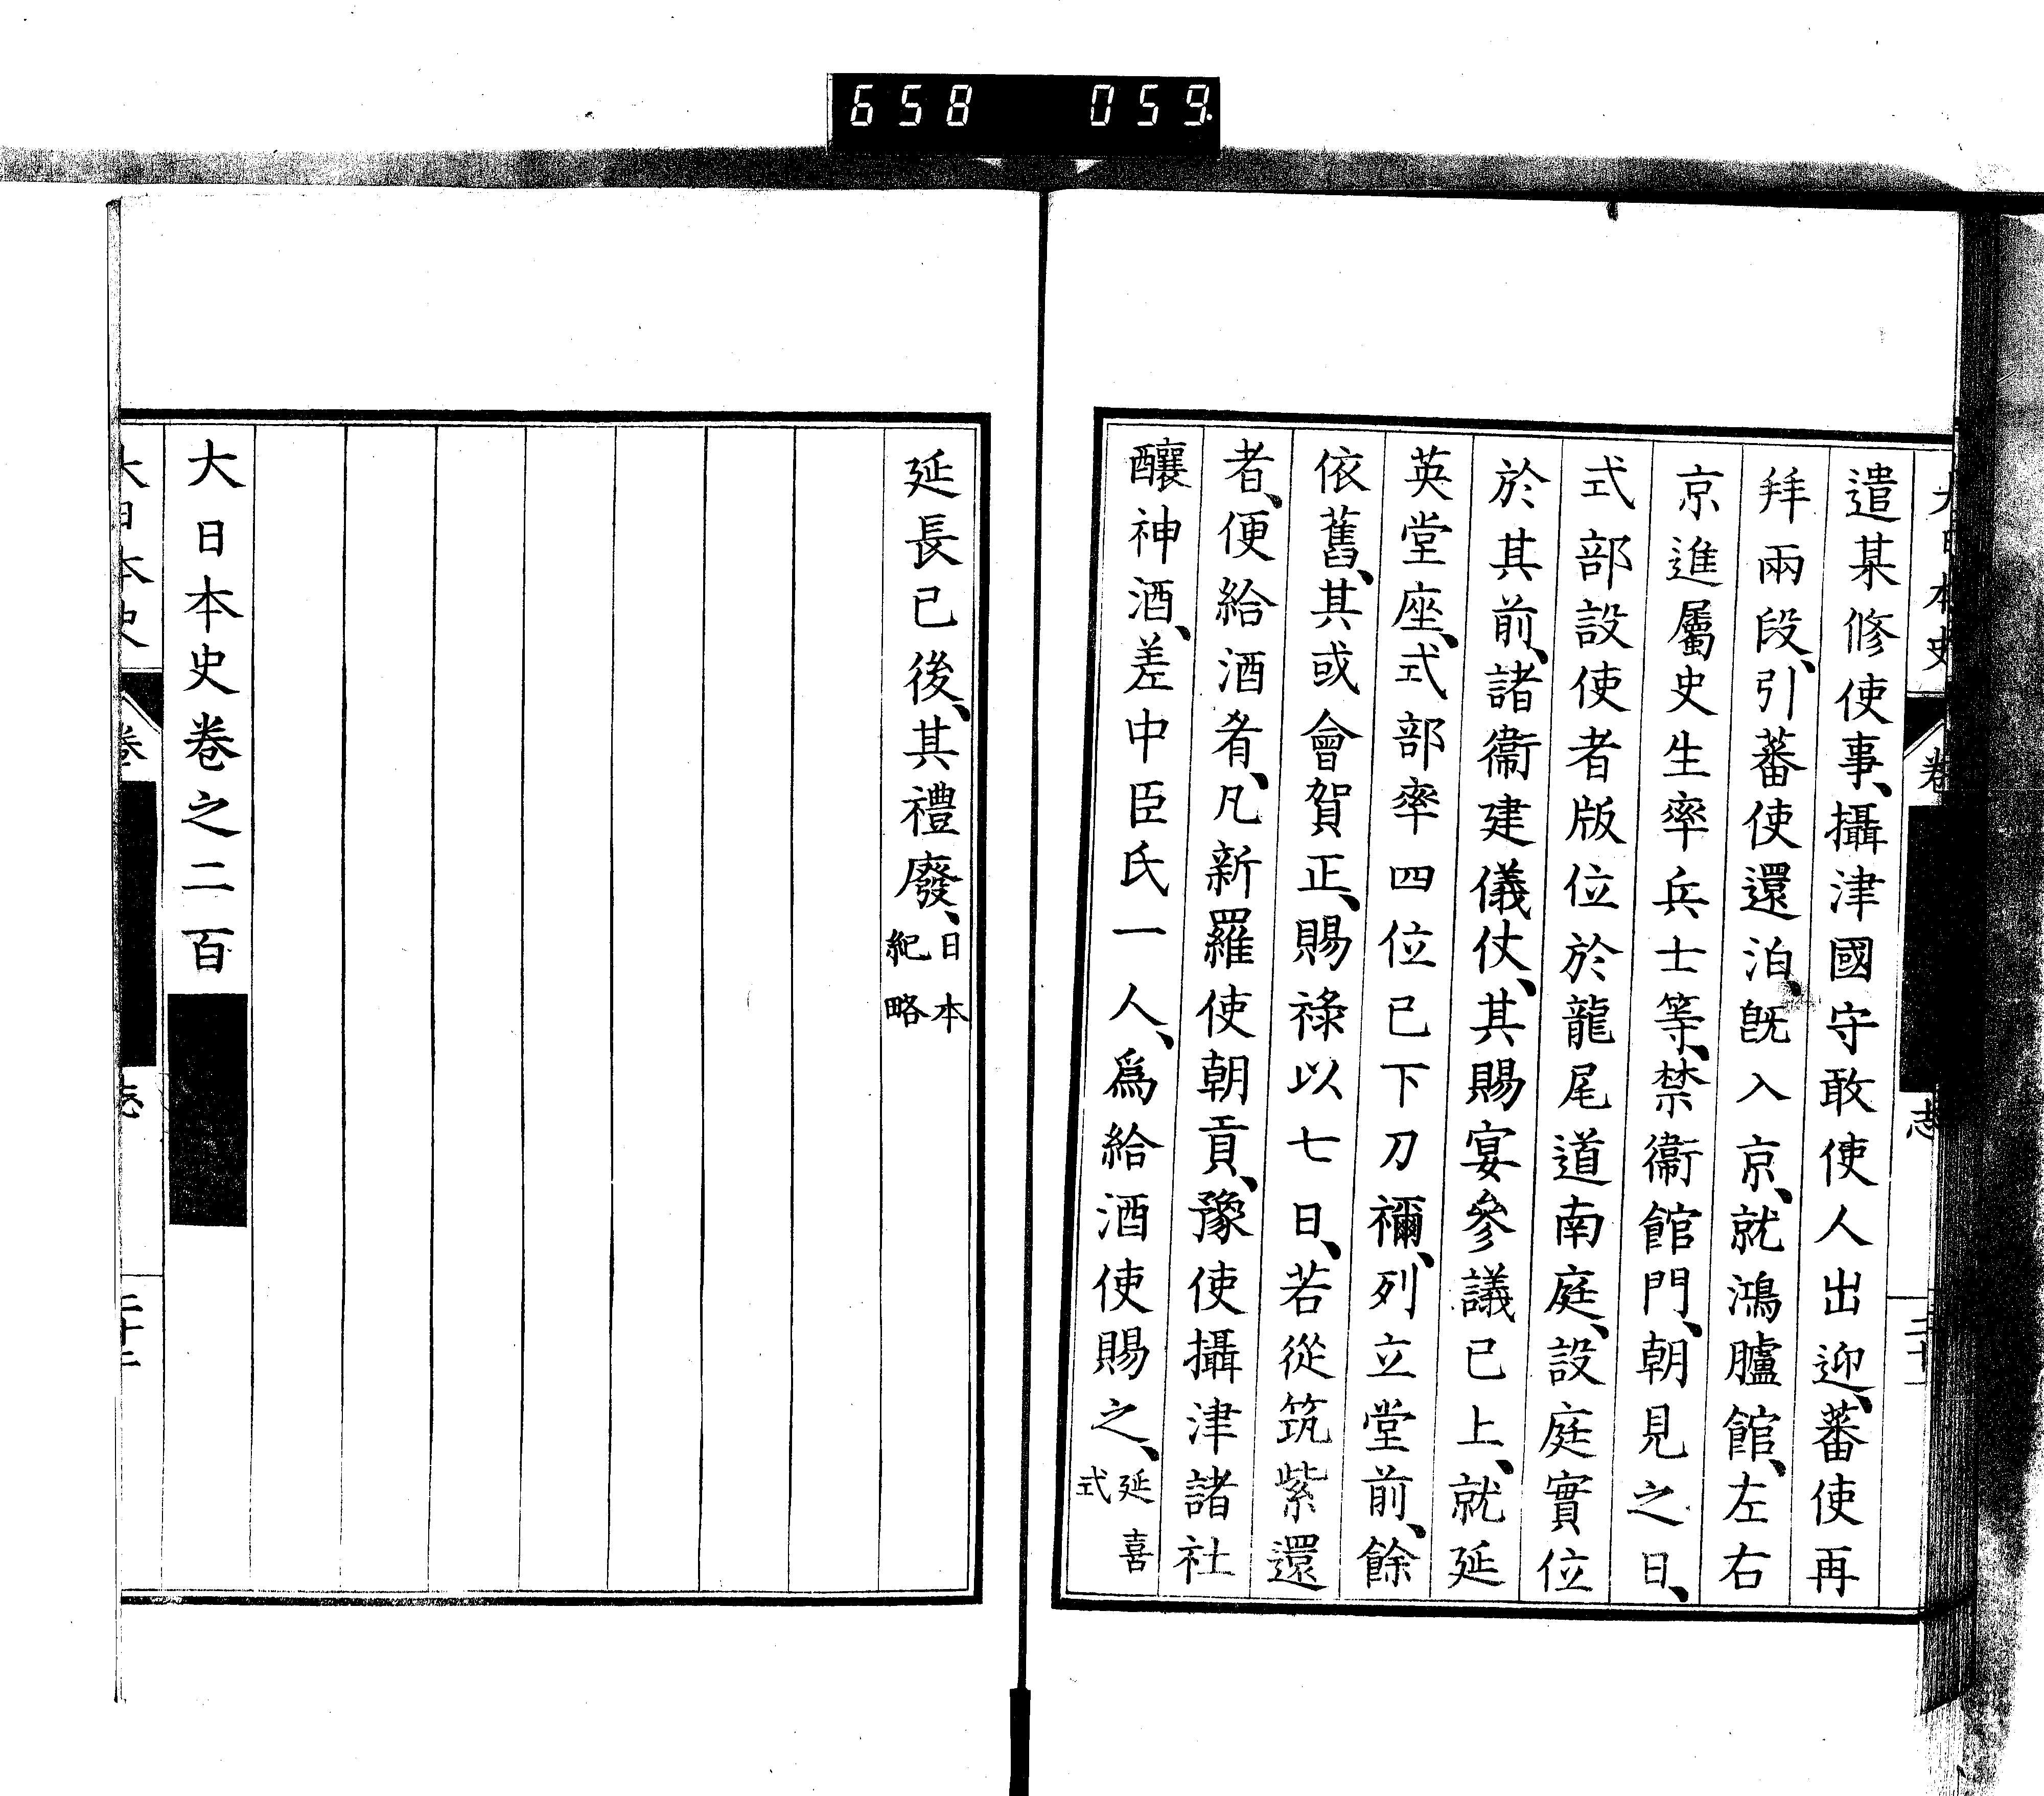 658 059
遣某修使事、攝津國守敢使人出迎、蕃使再
拜兩段、引蕃使還泊、既入京、就鴻臚館、左右
京進屬史生率兵士等、禁衞館門、朝見之日、
式部設使者版位於龍尾道南庭、設庭實位
於其前、諸衞建儀仗、其賜宴參議已上、就延
英堂座、式部率四位已下刀禰、列立堂前、餘
依舊、其或會賀正、賜祿以七日、若從筑紫還
者、便給酒肴、凡新羅使朝貢、豫使攝津諸社
釀神酒、差中臣氏一人、爲給酒使賜之、延喜式
延長已後、其禮廢、日本紀略
大日本史卷之二百